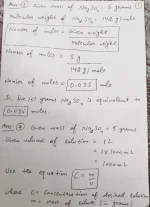 Ans ① Given mass of Na₂SO₄ = 5 grams
Molecular weight of Na₂SO₄ = 142 g/mole
Number of moles = Given weight
Molecular weight
Number of moles = 5 g
142 g/mole
Number of moles = 0.035 mole
So, five (5) grams Na₂SO₄ is equivalent to
0.035 moles.
Ans ② Given mass of Na₂SO₄ = 5 grams
Given volume of solution = 1L
= 1×1000mL
= 1000mL
Use the equation C = m
v
where C = Concentration of desired solution
m = mass of solute (in grams)